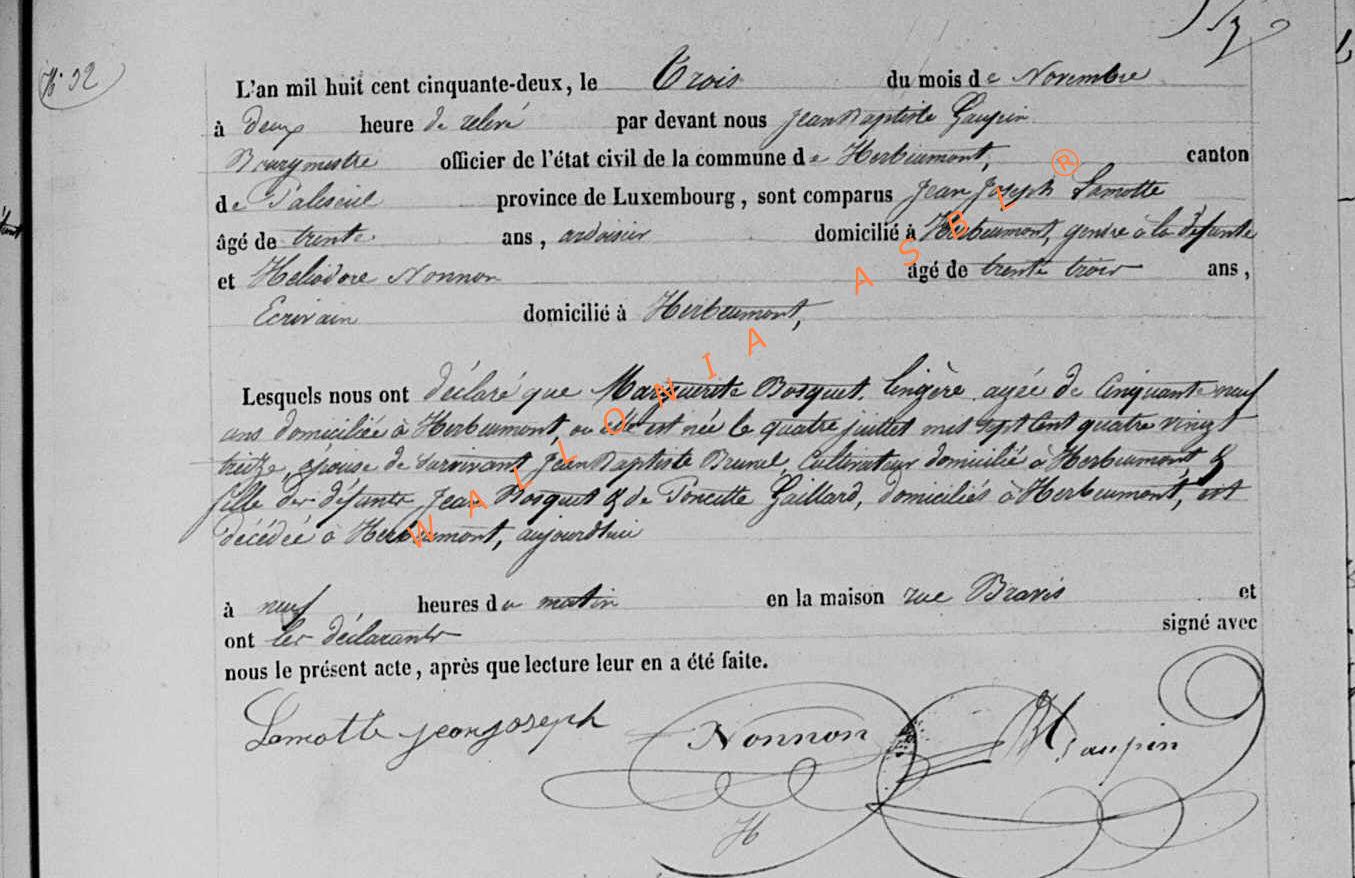 N° 32
L'an mil huit cent cinquante-deux, le Trois du mois de Novembre
à deux heure de relevé par devant nous Jean Baptiste Gaupin
Bourgmestre officier de l'état civil de la commune de Herbeumont, canton
de Paliseul province de Luxembourg, sont comparus Jean Joseph Lamotte
âgé de trente ans, ardoisier domicilié à Herbeumont, gendre à la défunte
et Heliodore Nonnon âgé de trente trois ans,
Ecrivain domicilié à Herbeumont,
Lesquels nous ont déclaré que Marguerite Bosquet, lingère agée de cinquante neuf
ans domiciliée à Herbeumont, ou elle est née le quatre juillet mil sept cent quatre vingt
treize, épouse de survivant Jean Baptiste Brunel, Cultivateur domicilié à Herbeumont &
fille des défunts Jean Bosquet & de Poncette Gaillard, domiciliés à Herbeumont, est
décédée à Herbeumont, aujourd'hui
à neuf heures du matin en la maison rue Bravis et
ont les déclarants signé avec
nous le présent acte, après que lecture leur en a été faite.
Lamotte jean joseph Nonnon Gaupin
H
WALLONIA ASBL ®